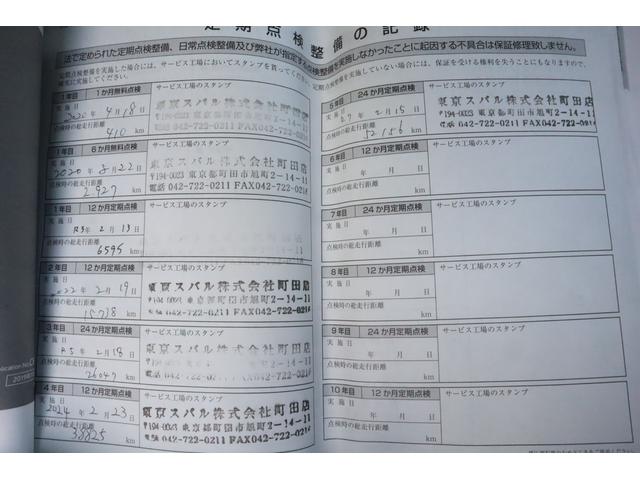 定期点検整備の記録
法で定められた定期点検整備、日常点検整備及び弊社が指定する点検整備を実施しなかったことに起因する不具合は保証修理致しません。
定期点検整備を実施した場合には、サービス工場においてスタンプを貰ってください。定期点検整備を実施していない場合には、保証を受ける権利を失うことにもなりますので、
確実に実施してください。
1か月無料点検 サービス工場のスタンプ
実施日 2020年4月18日
点検時の総走行距離
410 km
東京スバル株式会社町田店
〒194-0023 東京都町田市旭町2-14-11
電話 042-722-0211 FAX042-722-0211
1年目 6か月無料点検 サービス工場のスタンプ
実施日
2020年8月22日
点検時の総走行距離
2927 km
東京スバル株式会社町田店
〒194-0023 東京都町田市旭町2-14-11
電話 042-722-0211 FAX042-722-0211
1年目 12か月定期点検 サービス工場のスタンプ
実施日
R3年2月13日
点検時の総走行距離
6595 km
2年目 12か月定期点検 サービス工場のスタンプ
実施日
2022年2月19日
点検時の総走行距離
15738 km
東京スバル株式会社町田店
〒194-0023 東京都町田市旭町2-14-11
電話 042-722-0211 FAX042-722-0211
3年目 24か月定期点検 サービス工場のスタンプ
実施日
R5年2月18日
点検時の総走行距離
26047 km
東京スバル株式会社町田店
〒194-0023 東京都町田市旭町2-14-11
電話 042-722-0211 FAX042-722-0211
4年目 12か月定期点検 サービス工場のスタンプ
実施日
2024年2月23日
点検時の総走行距離
38825 km
東京スバル株式会社町田店
〒194-0023 東京都町田市旭町2-14-11
電話 042-722-0211 FAX042-722-0211
5年目 24か月定期点検 サービス工場のスタンプ
実施日
年2月15日
点検時の総走行距離
52186 km
東京スバル株式会社町田店
〒194-0023 東京都町田市旭町2-14-11
電話 042-722-0211 FAX042-722-0211
6年目 12か月定期点検 サービス工場のスタンプ
実施日
年 月 日
点検時の総走行距離
km
7年目 24か月定期点検 サービス工場のスタンプ
実施日
年 月 日
点検時の総走行距離
km
8年目 12か月定期点検 サービス工場のスタンプ
実施日
年 月 日
点検時の総走行距離
km
9年目 24か月定期点検 サービス工場のスタンプ
実施日
年 月 日
点検時の総走行距離
km
10年目 12か月定期点検 サービス工場のスタンプ
実施日
年 月 日
点検時の総走行距離
km